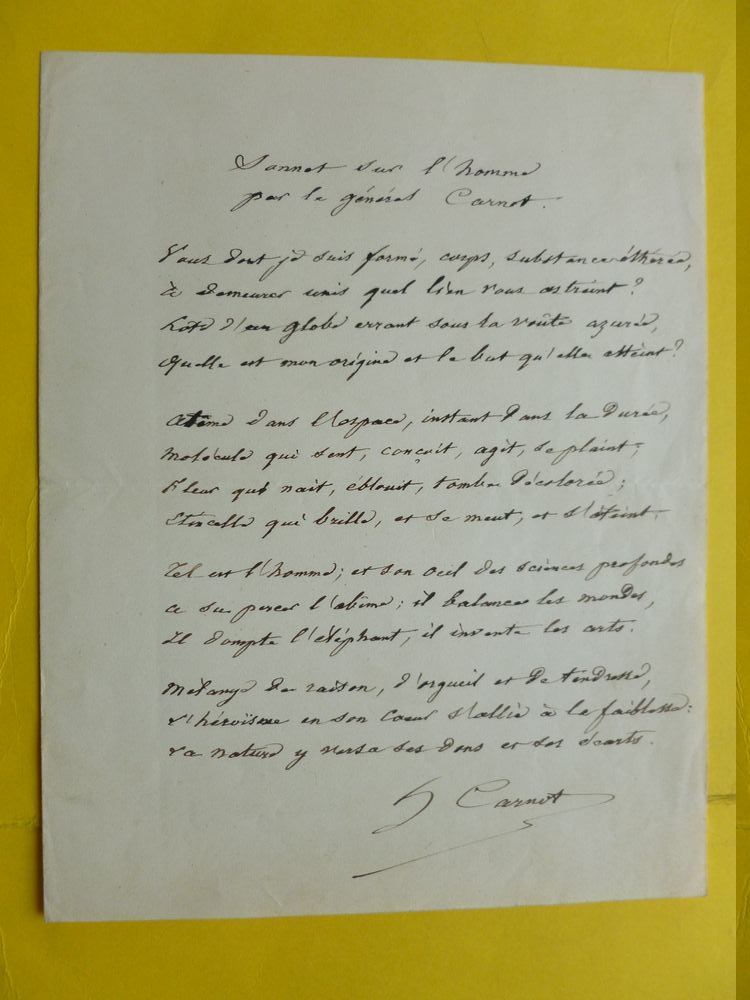 Sonnet sur l'homme
par le général Carnot.
Vous dont je suis formé, corps, substance éthérée,
À demeurer unis quel lien vous astreint?
Hôte d'un globe errant sous la voûte azurée,
Quelle est mon origine et le but qu'elle atteint?
Atôme dans l'espace, instant dans la durée,
Molécule qui sent, conçoit, agit, se plaint;
Fleur qui nait, éblouit, tombe décolorée;
Etincelle qui brille, et se meut, et s'éteint.
Tel est l'homme; et son oeil des sciences profondes
a su percer l'abîme; il balance les mondes,
Il dompte l'éléphant, il invente les arts.
Mélange de raison, d'orgueil et de tendresse,
L'héroïsme en son coeur s'allie à la faiblesse:
La nature y versa ses dons et ses écarts.
H Carnot